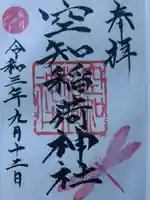 奉拝
空知稲荷神社
令和三年九月十二日